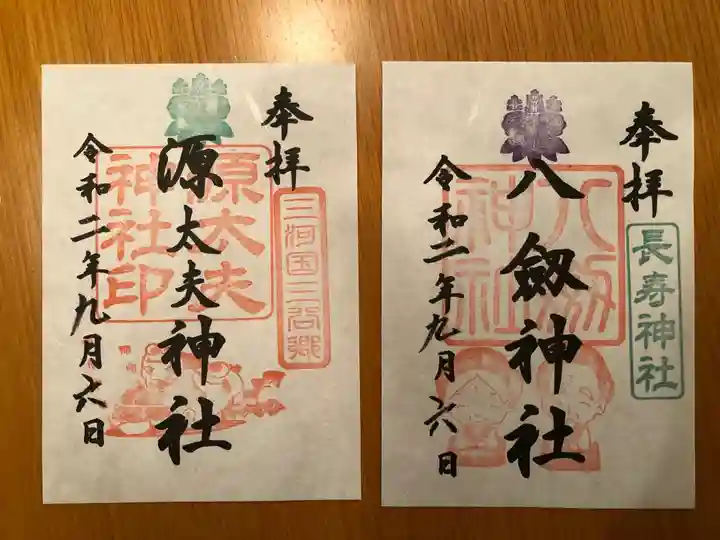 奉拝
三河国三谷郷
源太夫神社
源太夫
神社印
令和二年九月六日
奉拝
長寿神社
八劔神社
神社
令和二年九月六日